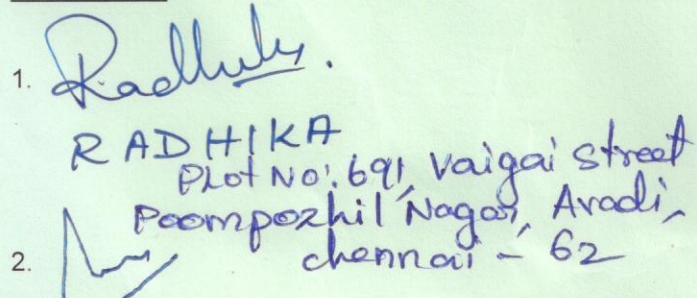 1. Radhika.
RADHIKA
Plot No: 691, Vaigai street
Poompozhil Nagar, Avadi,
chennai - 62
2.